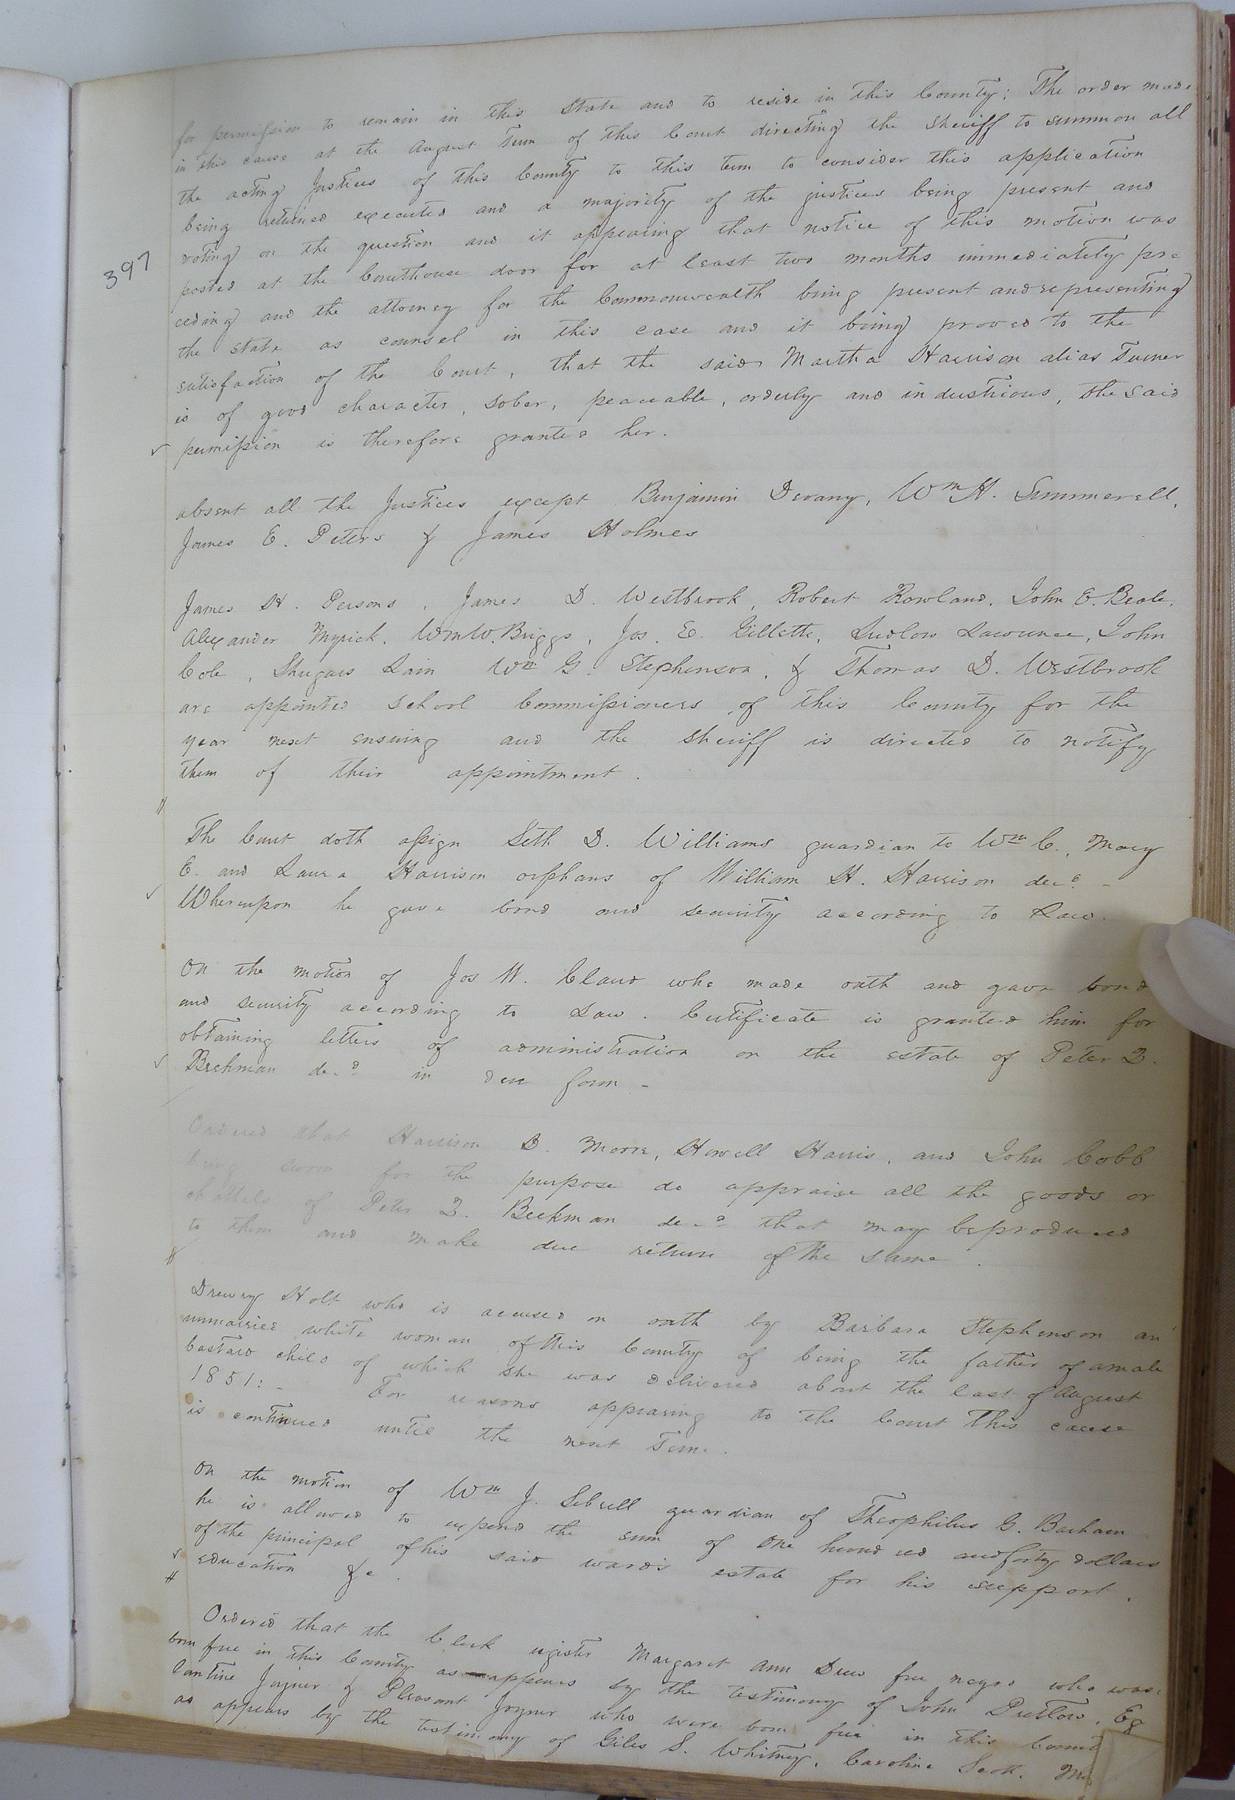 for permission to remain in this State and to reside in this County; The order made
in this cause at the August Term of this Court directing the Sheriff to summon all
the acting Justices of this County to this term to consider this application
being returned executed and a majority of the justices being present and
voting on the question and it appearing that notice of this motion was
397
posted at the Courthouse door for at least two months immediately pre
ceding and the attorney for the Commonwealth being present and representing
the state as counsel in this case and it being proved to the
satisfaction of the Court, that the said Martha Harrison alias Turner
is of good character, sober, peaceable, orderly and industrious, the said
permission is therefore granted her.
absent all the Justices except Benjamin Devany, Wm H. Summerell,
James E. Peters & James Holmes
James H. Persons, James D. Westbrook, Robert Rowland, John E. Beale,
Alexander Myrick, Wm W. Briggs, Jos. E. Gillette, Ludlow Lawrence, John
Cole, Shugars Lain Wm G. Stephenson, & Thomas D. Westbrook
are appointed School Commissioners of this County for the
year next ensuing and the Sheriff is directed to notify
them of their appointment.
The Court doth assign Seth D. Williams guardian to Wm C., Mary
E. and Laura Harrison orphans of William H. Harrison decd. -
Whereupon he gave bond and security according to Law.
On the motion of Jos W. Claud who made oath and gave bond
and security according to Law. Certificate is granted him for
obtaining letters of administration on the estate of Peter
Beekman decd in due form -
Ordered that Harrison D. Moore, Howell Harris, and John Cobb
being sworn for the purpose do appraise all the goods or
chattels of Peter Beekman decd that may be produced
to them and make due return of the same.
Drewry Holt who is accused on oath by Barbara Stephenson an
unmarried white woman of this County of being the father of a male
bastard child of which she was delivered about the last of August
1851: - For reasons appearing to the Court this cause
is continued until the next Term.
On the motion of Wm J. Sebrell guardian of Theophilus G. Barham
he is allowed to expend the sum of One hundred and forty dollars
of the principal of his said ward's estate for his support,
education &c.
Ordered that the Clerk register Margaret Ann Drew free negro who was
born free in this County as appears by the testimony of John Pretlow, Eg
Joyner & Pleasant Joyner who were born free in this
as appears by the testimony of Giles S. Whitney, Caroline Scott,